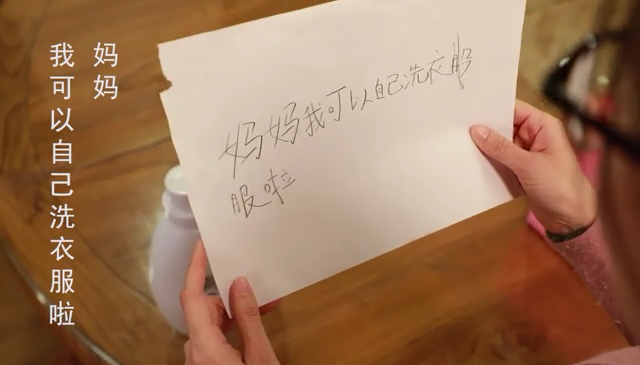 妈妈
我可以自己洗衣服啦
妈妈我可以自己洗衣
服啦